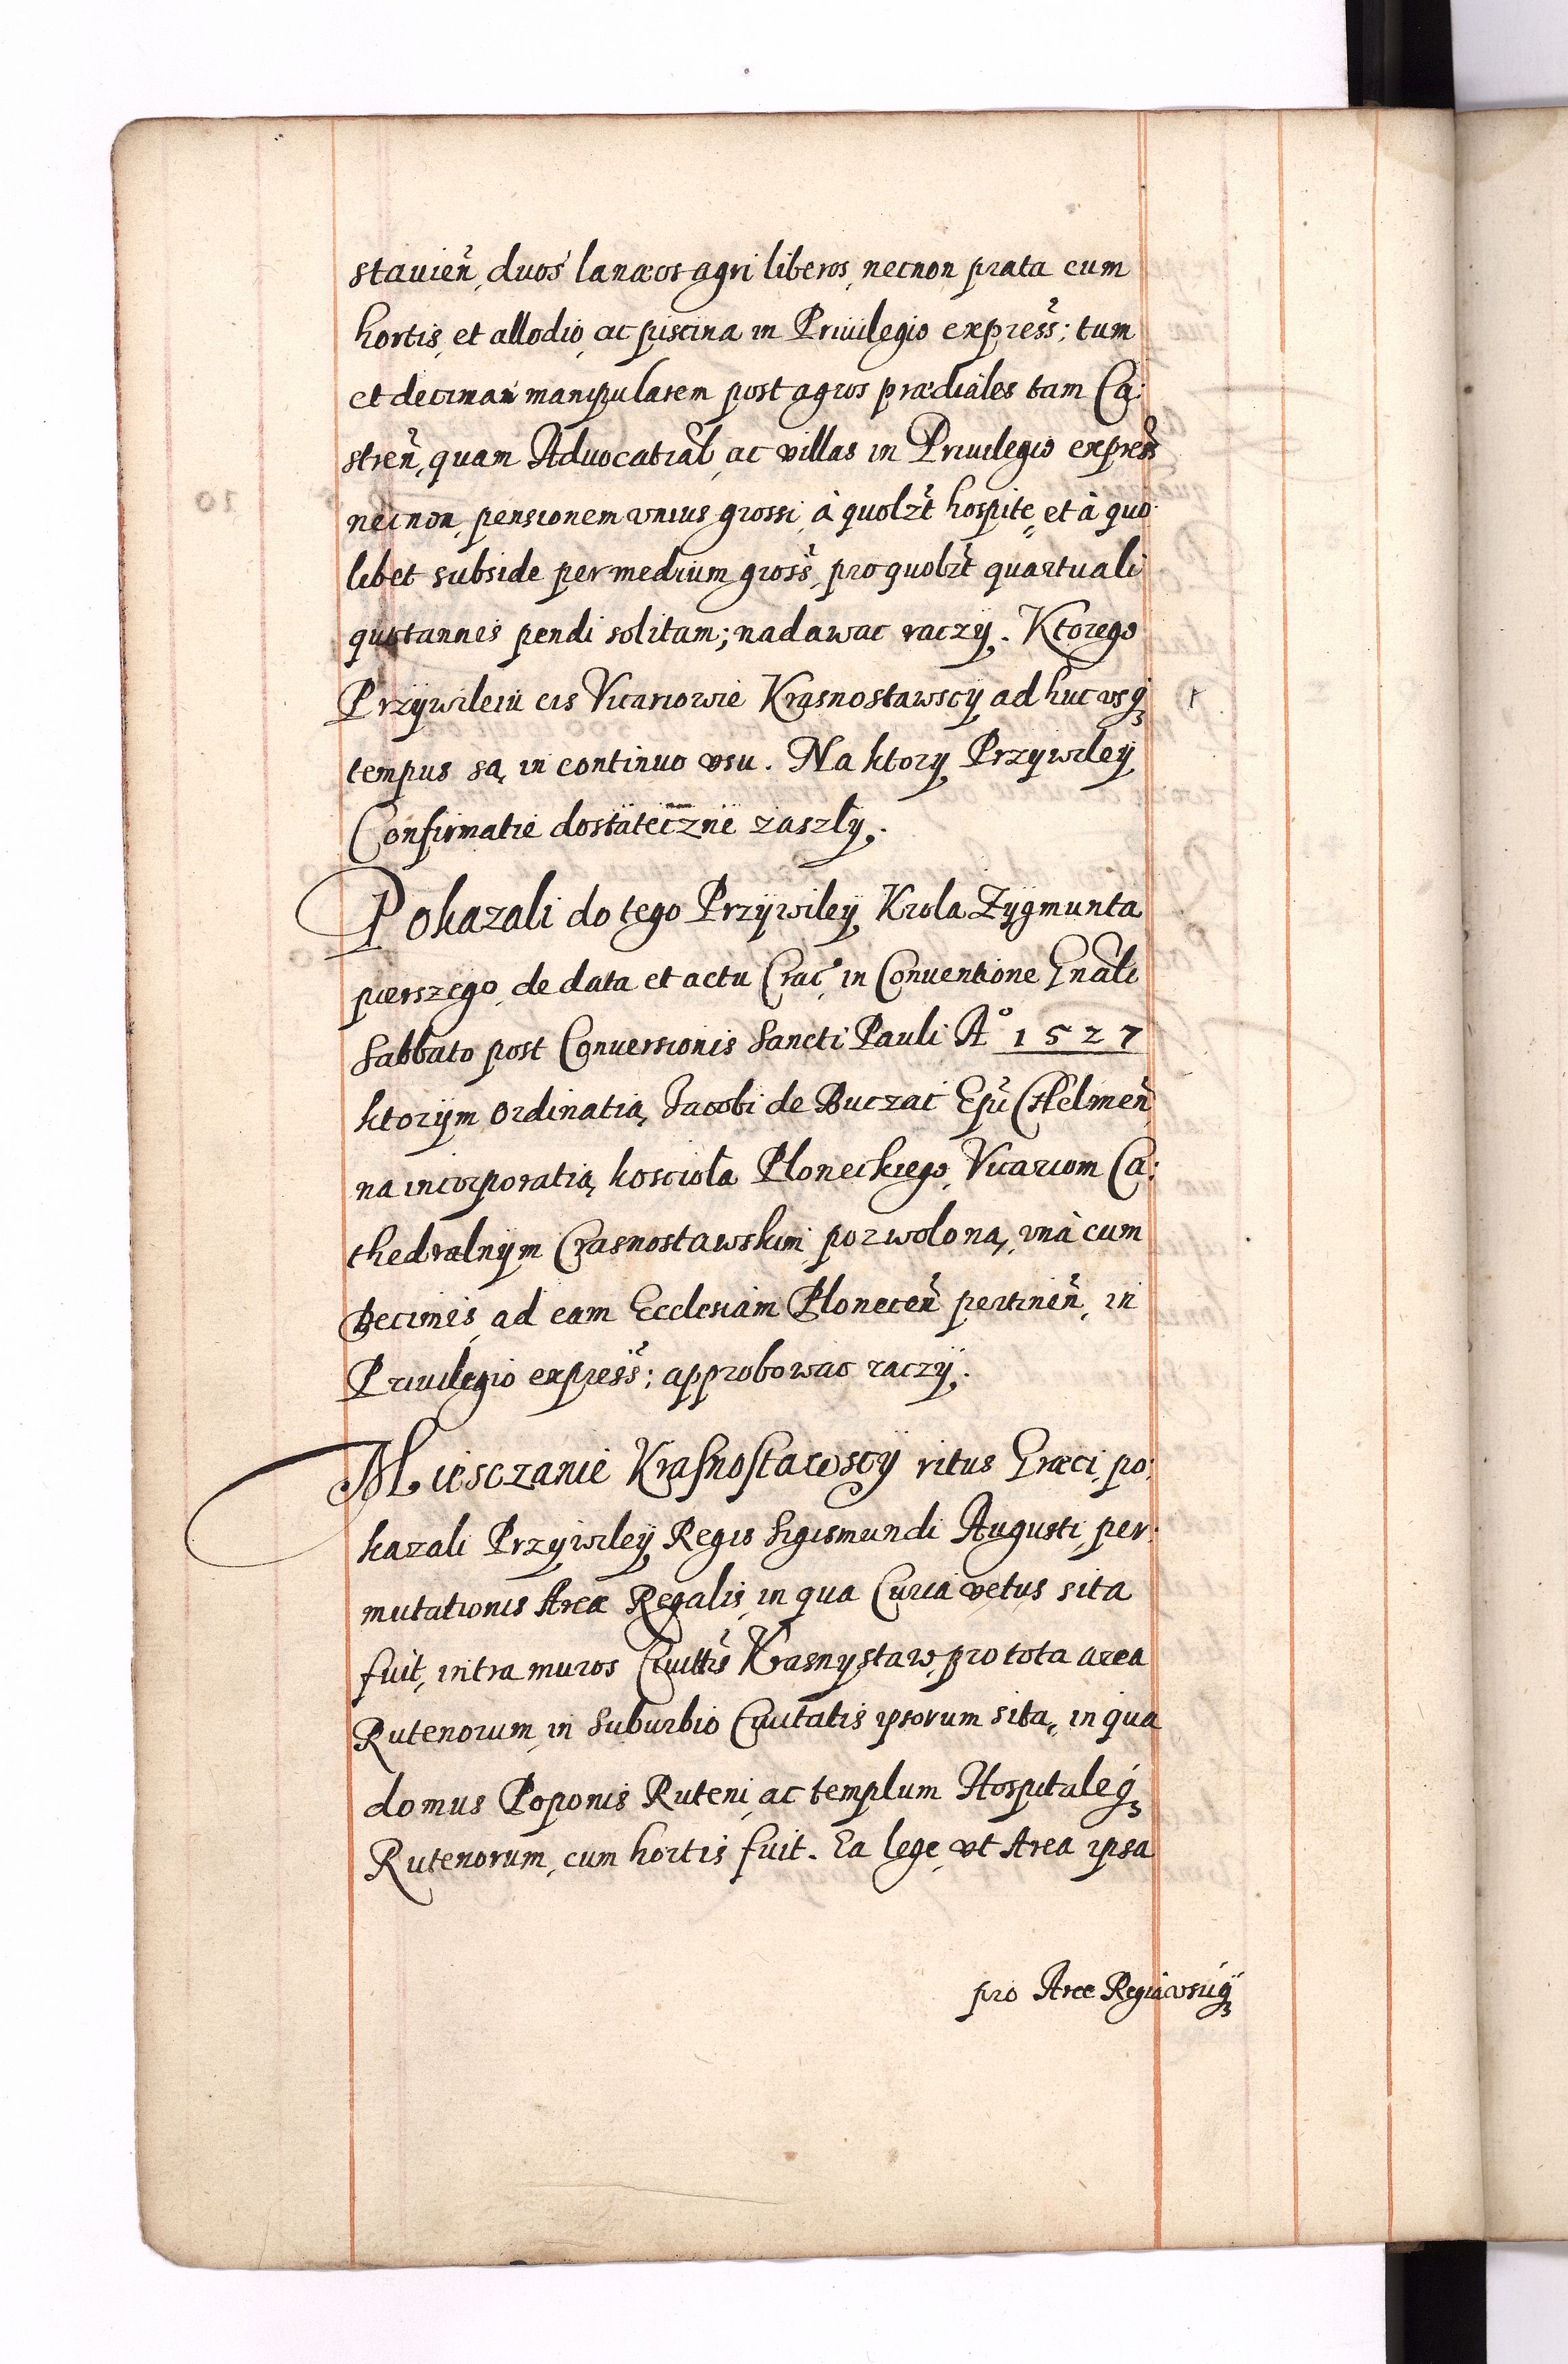 stavień, duos lanæos agri liberos, necnon prata cum
hortis, et allodio, ac piscina in Priuilegio express̃: tum
et decimam manipularem post agros prædiales tam Ca:
streñ, quam Advocatiał, ac villas in Priuilegio expreß
necnon pensionem vnius grossi à quolżt hospite, et à quo
libet subside per medium gross̃, pro quolżt quartuali
quotannis pendi solitam; nadawac raczÿ. Ktorego
Przÿwileiu cis Vicariowie Krasnostawscÿ ad huc vsq́ꝫ
tempus są, in continuo vsu. Na ktorÿ Przÿwileÿ
Confirmatie dostatecznie zaszłÿ.
Pokazali do tego Przÿwileÿ Krola Zÿgmunta
pierszego, de data et actu Crac̃, in Conventione Gnãli
Sabbato post Conversionis Sancti Pauli A° 1527
ktorÿm Ordinatią, Jacobi de Buczac Epi Chelmeñ,
na incorporatią, kosciola Płoneckiego, Vicariom Ca:
thedralnÿm Crasnostawskim pozwoloną, vnà cum
Decimis, ad eam Ecclesiam Płoneceñ pertineñ, in
Priuilegio express̃; approbowac raczÿ.
Miesczanie Krasnostawscÿ ritus Græci, po:
kazali Przÿwileÿ Regis Sigismundi Augusti, per:
mutationis Areæ Regalis, in qua Curia vetus sita
fuit, intra muros Ciuittis̃ Krasnystaw, pro tota area
Rutenorum, in Suburbio Ciuitatis ipsorum sita, in qua
domus Poponis Ruteni, ac templum Hospitaleq́ꝫ
Rutenorum, cum hortis fuit. Ea lege, vt Area ipsa
pro Arce Regia vsuq́ꝫ